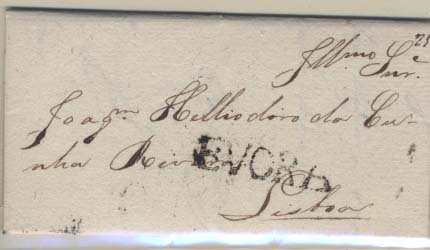 25
Illmo Snr.e
Joaqm Helliodoro da Cu-
nha Rivara
EVORA
Lisboa